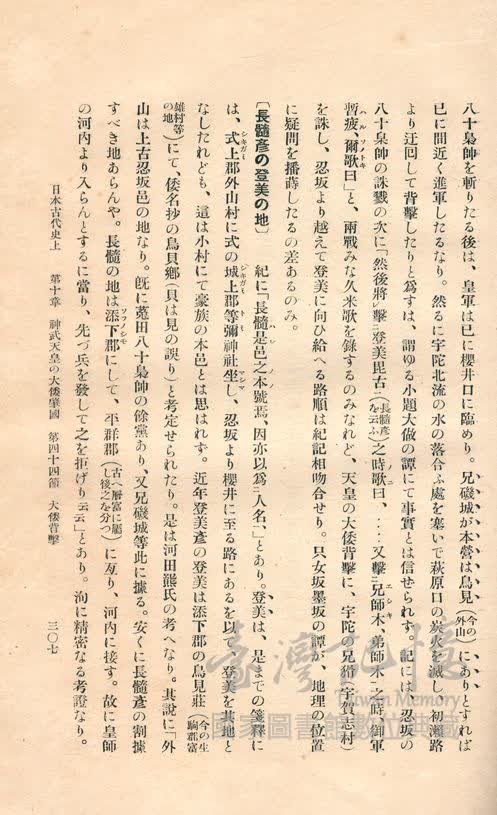 八十梟帥を斬りたる後は、皇軍は已に櫻井口に臨めり。兄磯城が本營は鳥見(今の外山)にありとすれば
已に間近く進軍したるなり。然るに宇陀北流の水の落合ふ處を塞いで萩原口の炭火を滅し、初瀨路
より迂回して背擊したりと爲すは、謂ゆる小題大做の譚にて事實とは信せられす。記には、忍坂の
八十梟帥の誅戮の次に「然後將擊登美毘古(長髓彥を云ふ)之時歌曰、‥‥又擊兄師木、弟師木之時、御軍
暫疲、爾歌曰」と、兩戰みな久米歌を錄するのみなれど、天皇の大倭背擊に、宇陀の兄猾(宇賀志村)
を誅し、忍坂より越えて登美に向ひ給へる路順は紀記相吻合せり。只女坂墨坂の譚が、地理の位置
に疑問を播蒔したるの差あるのみ。
〔長髓彥の登美の地〕 紀に「長髓是邑之本號焉、因亦以爲人名、」とあり。登美は、是までの箋釋に
は、式上郡外山村に式の城上郡等彌神社坐し、忍坂より櫻井に至る路にあるを以て、登美を其地と
なしたれども、這は小村にて豪族の本邑とは思はれす。近年登美彥の登美は添下郡の鳥見莊(今の生駒郡富
雄村等の地)にて、倭名抄の鳥貝鄕(貝は見の誤り)と考定せられたり。是は河田羆氏の考へなり。其說に「外
山は上古忍坂邑の地なり。既に菟田八十梟帥の餘黨あり、又兄磯城等此に據る。安くに長髓彥の割據
すべき地あらんや。長髓の地は添下郡にして、平群郡(古へ曆富に屬し後之を分つ)に亙り、河內に接す。故に皇師
の河內より入らんとするに當り、先づ兵を發して之を拒げり云云」とあり。洵に精密なる考證なり。
日本古代史上 第十章 神武天皇の大倭肇國 第四十四節 大倭背擊 三〇七
臺灣記憶
Taiwan Memory
國家圖書館數位典藏